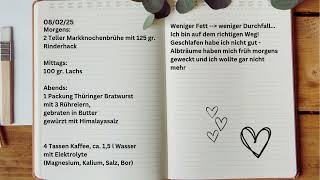 08/02/25
Morgens:
2 Teller Markknochenbrühe mit 125 gr.
Rinderhack
Mittags:
100 gr. Lachs
Abends:
1 Packung Thüringer Bratwurst
mit 3 Rühreiern,
gebraten in Butter
gewürzt mit Himalayasalz
4 Tassen Kaffee, ca. 1,5 l Wasser
mit Elektrolyte
(Magnesium, Kalium, Salz, Bor)
Weniger Fett --> weniger Durchfall...
Ich bin auf dem richtigen Weg!
Geschlafen habe ich nicht gut -
Albträume haben mich früh morgens
geweckt und ich wollte gar nicht
mehr